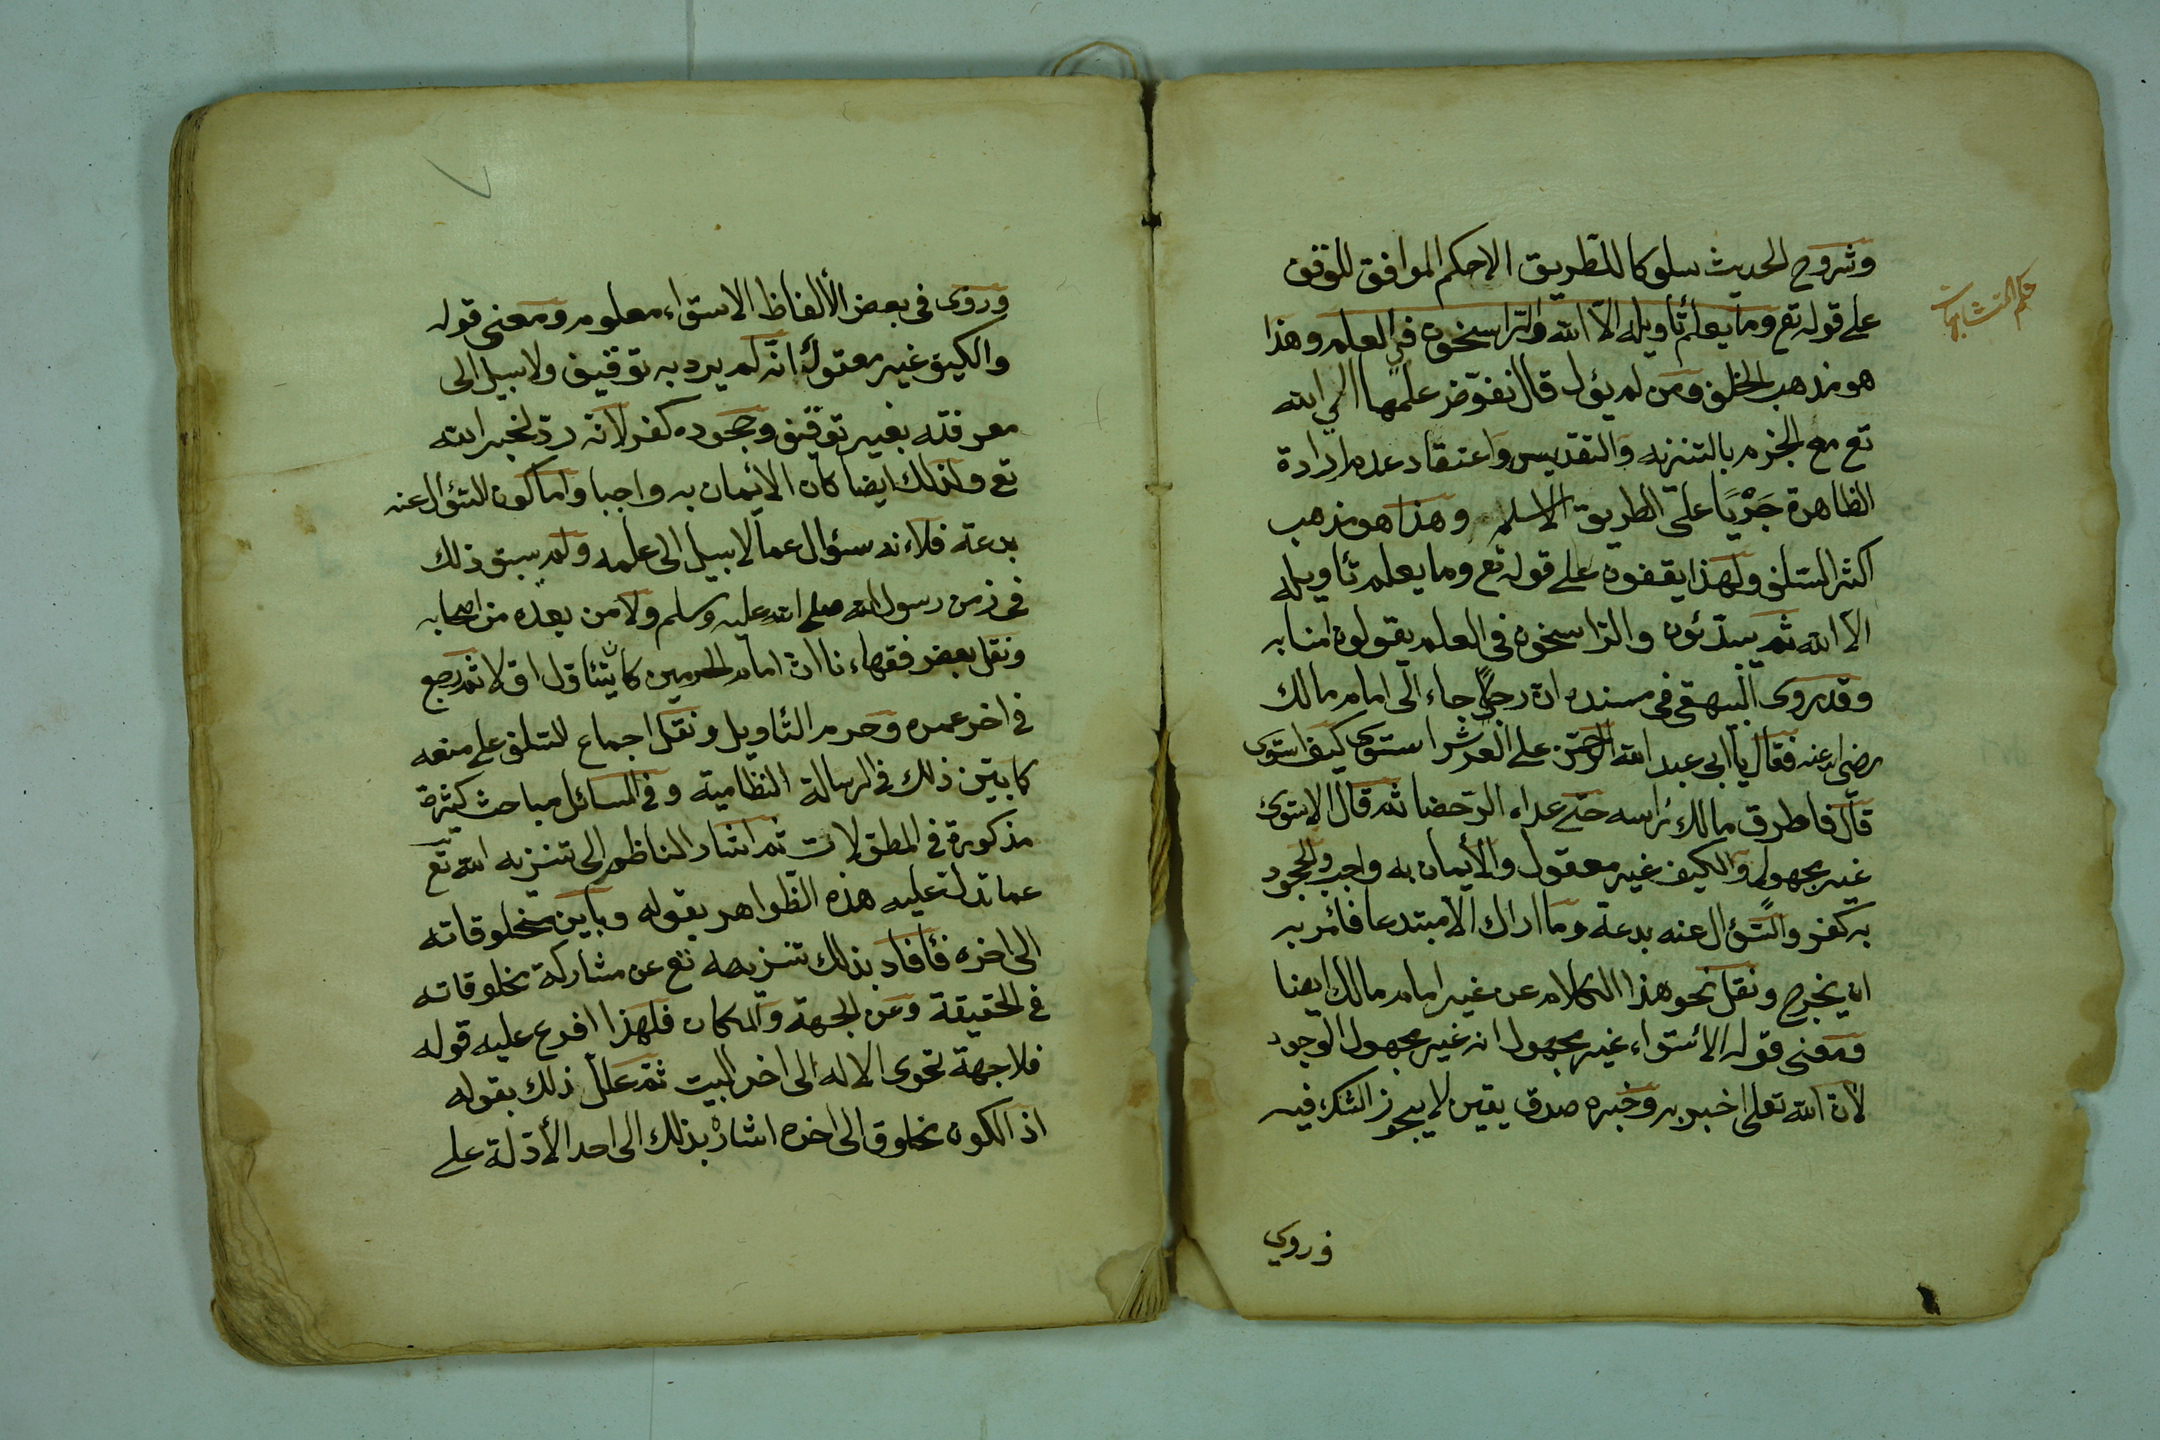 وشروح الحديث سلوكا للطريق الاحكم الموافق للوقف
على قوله تع وما يعلم تأويله الا الله والراسخون في العلم وهذا
هو مذهب الخلف ومن لم يؤل قال نفوّض علمها الي الله
تع مع الجزم بالتنزيه والتقديس واعتقاد عدم ارادة
الظاهرة جَرْيًا على الطريق الاسلم وهذا هو مذهب
اكثر السلف ولهذا يقفون على قوله تع وما يعلم تأويله
الا الله ثم يبتدئون والراسخون في العلم يقولون امنا به
وقد روى البيهقى فى مسنده ان رجلا جاء الى امام مالك
رضى الله عنه فقال يا ابى عبد الله الرحمن على العرش استوى كيف استوى
قال فاطرق مالك رأسه حتى علاه الرحضا ثم قال الاستوى
غير مجهول والكيف غير معقول والأيمان به واجب والجحود
به كفر والسّؤال عنه بدعة وما اراك الا مبتدعا فأمر به
ان يخرج ونقل نحو هذا الكلام عن غير امام مالك ايضا
ومعنى قوله الاستواء غير مجهول انه غير مجهول الوجود
لان الله تعلى اخبر به وخبره صدق يقين لا يجوز الشك فيه
وروي
حكم المتشابهات
وروى فى بعض الألفاظ الاستواء معلوم ومعنى قوله
والكيف غير معقول انه لم يرد به توقيف ولا سبيل الى
معرفته بغير توقيف وجحوده كفر لانه ردّ لخبر الله
تع ولذلك ايضا كان الأيمان به واجبا واما كون السّؤال عنه
بدعة فلانه سؤال عما لا سبيل الى علمه ولم يسبق ذلك
فى زمن رسول الله صلى الله عليه وسلم ولا من بعده من اصحابه
ونقل بعض فقهاءنا ان امام الحرمين كان يتئاول اوّلا ثم رجع
فى اخر عمره وحرم التأويل ونقل اجماع السلف على منعه
كما بيّن ذلك فى الرسالة النظامية وفى المسائل مباحث كثيرة
مذكورة فى المطولات ثم اشار الناظم الى تنزيه الله تع
عما تدلّ عليه هذه الظواهر بقوله وباين مخلوقاته
الى اخره فأفاد بذلك تنزيهه تع عن مشاركة مخلوقاته
فى الحقيقة وعن الجهة والمكان فلهذا افرع عليه قوله
فلا جهة تحوى الاله الى اخر البيت ثم علل ذلك بقوله
اذ الكون مخلوق الى اخره اشار بذلك الى احد الأدلة على